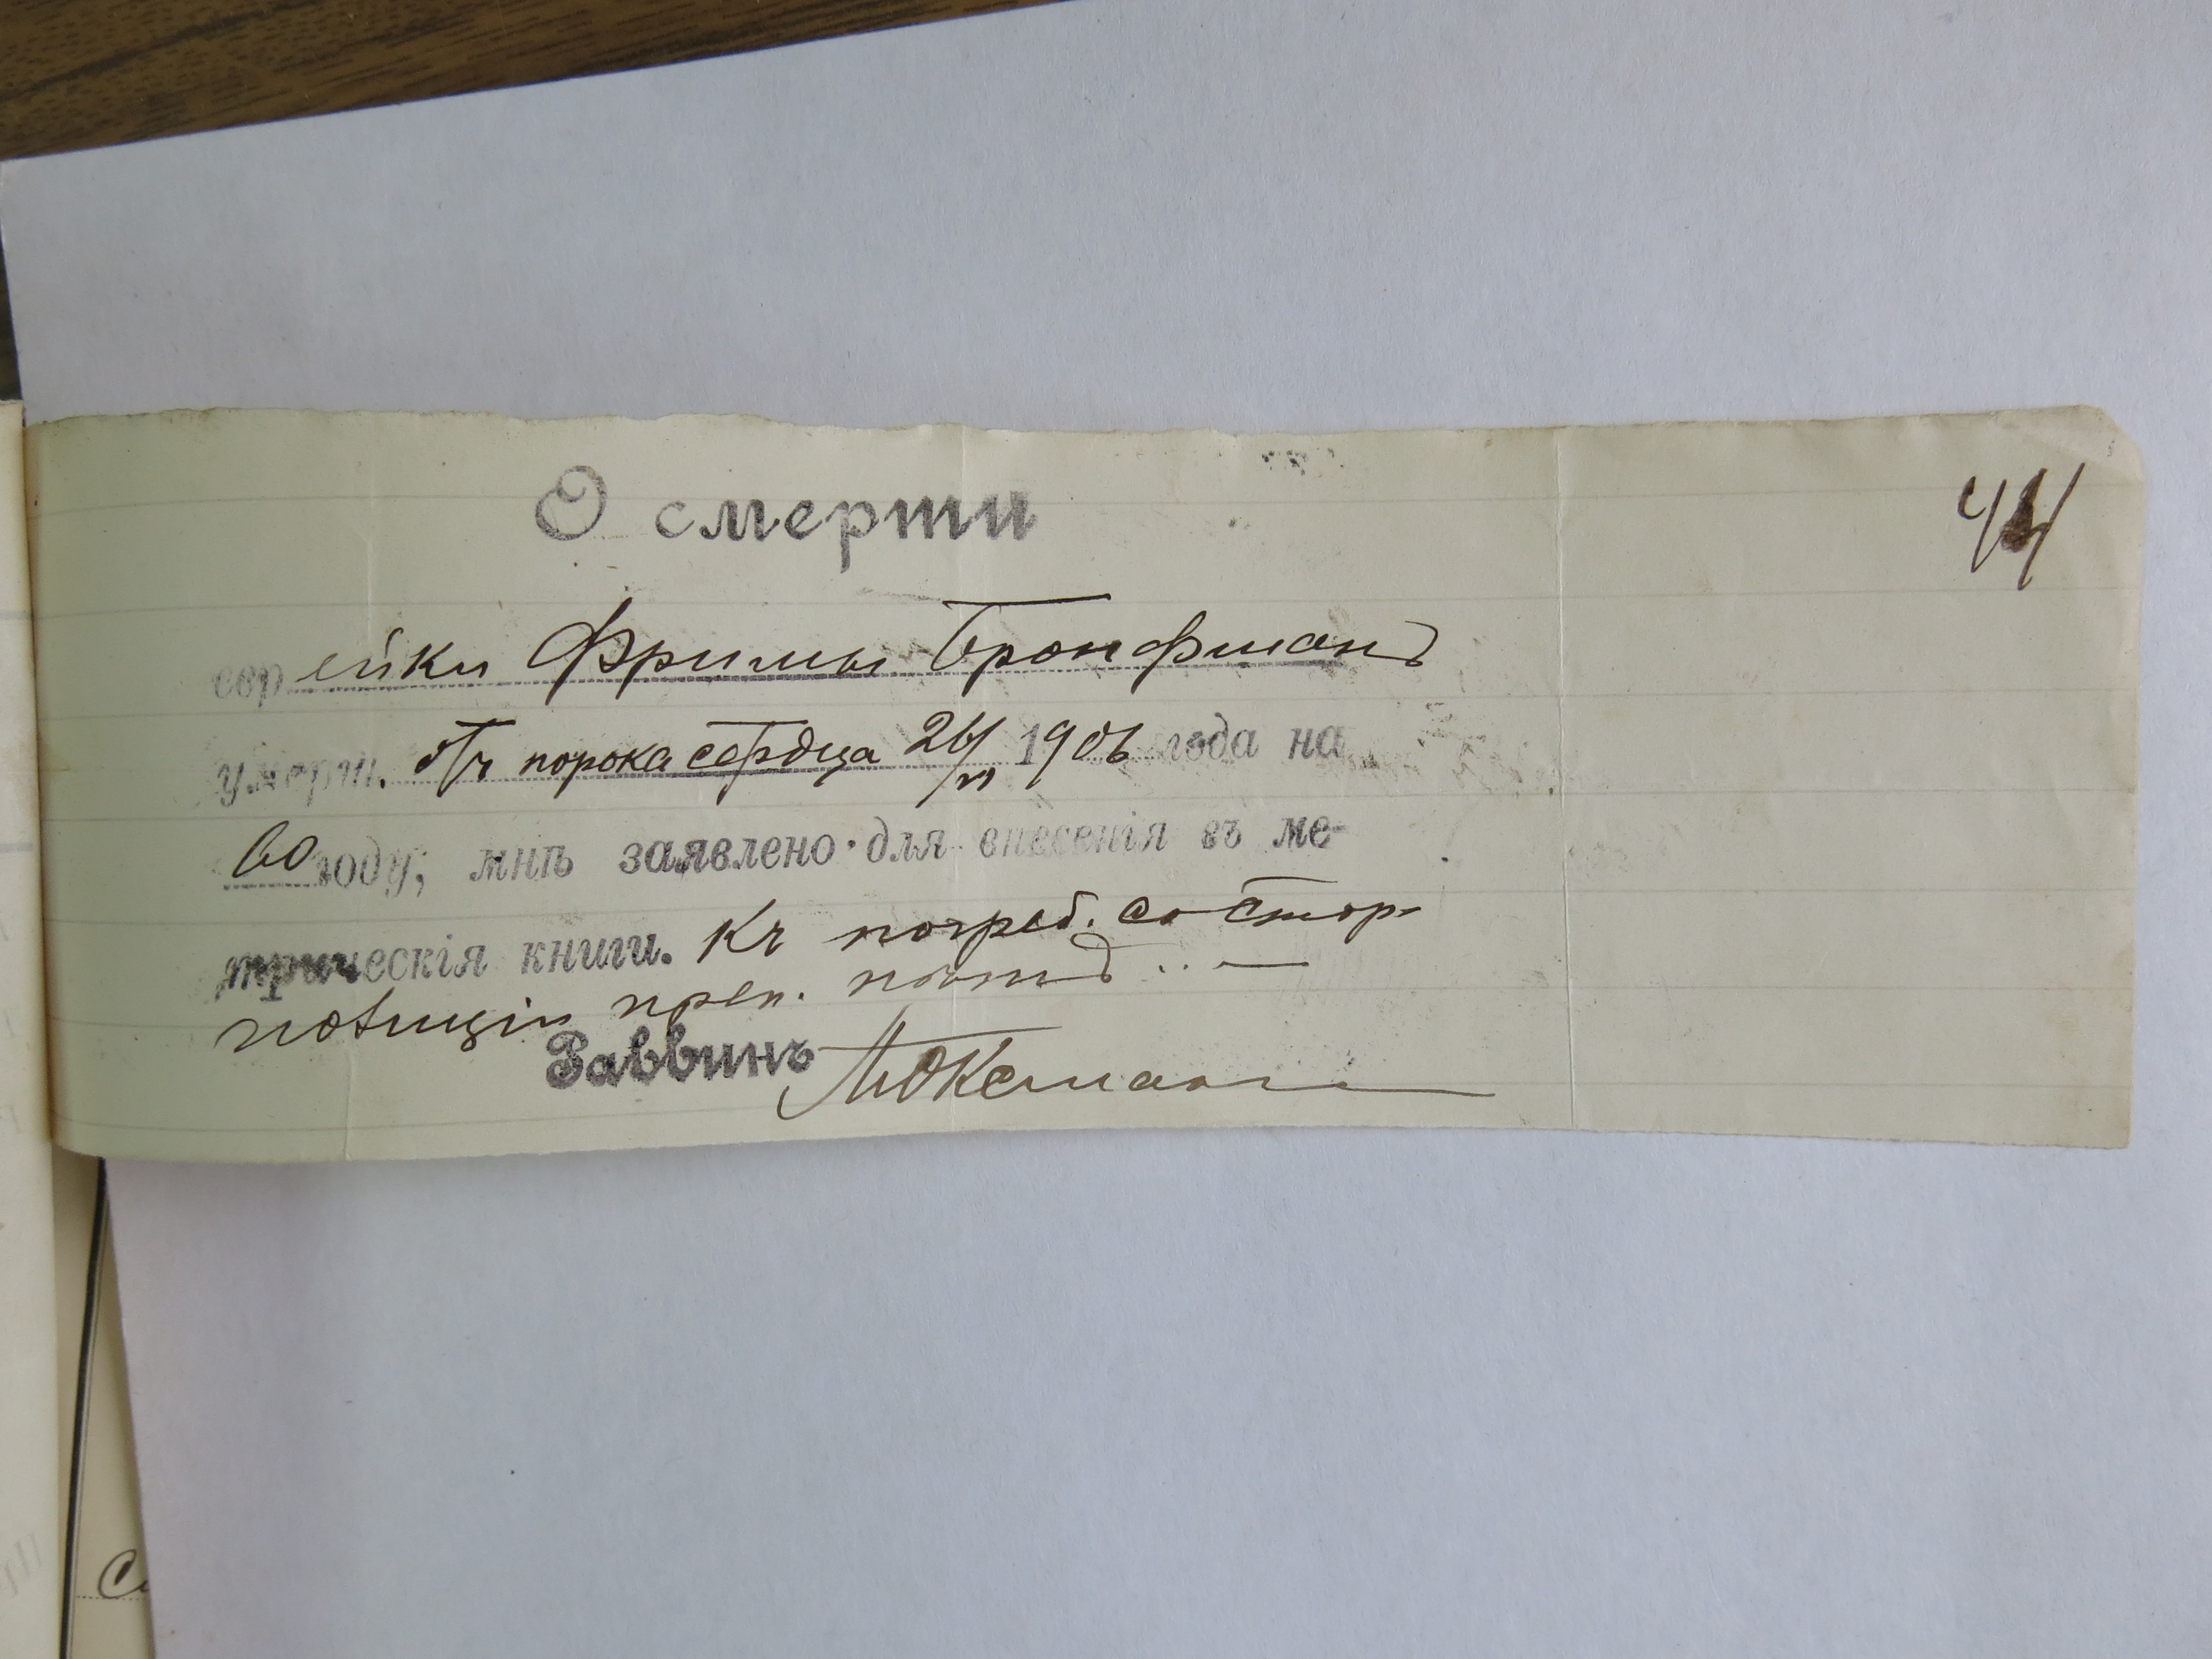 44
О смерти
еврейки Фримы Бронфманъ
умерш. отъ порока сердца 26/VI 1906 года на
60 году, мнѣ заявлено для внесенія въ ме-
трическія книги. Къ погреб. со стор.
полиціи преп. нѣтъ..—
Раввинъ